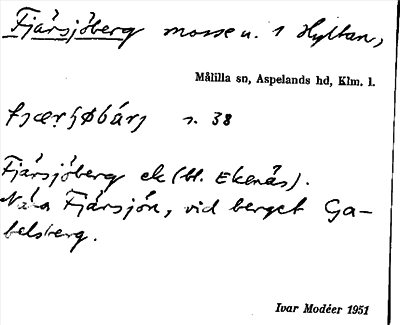 Fjärsjöberg mosse u. 1 Hyltan,
Målilla sn, Aspelands hd, Klm. l.
s. 38
Fjärsjöberg ek (bl. Ekenäs).
Nära Fjärsjön, vid berget Ga-
belsberg.
Ivar Modéer 1951